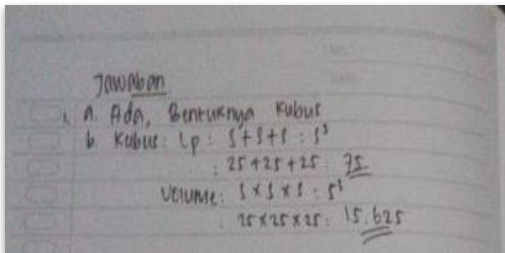 Jawaban
1. a. Ada, Bentuknya Kubus
b. Kubus: Lp: S+S+S : S³
: 25+25+25 : 75
Volume: S x S x S : S³
: 25 x 25 x 25 : 15.625